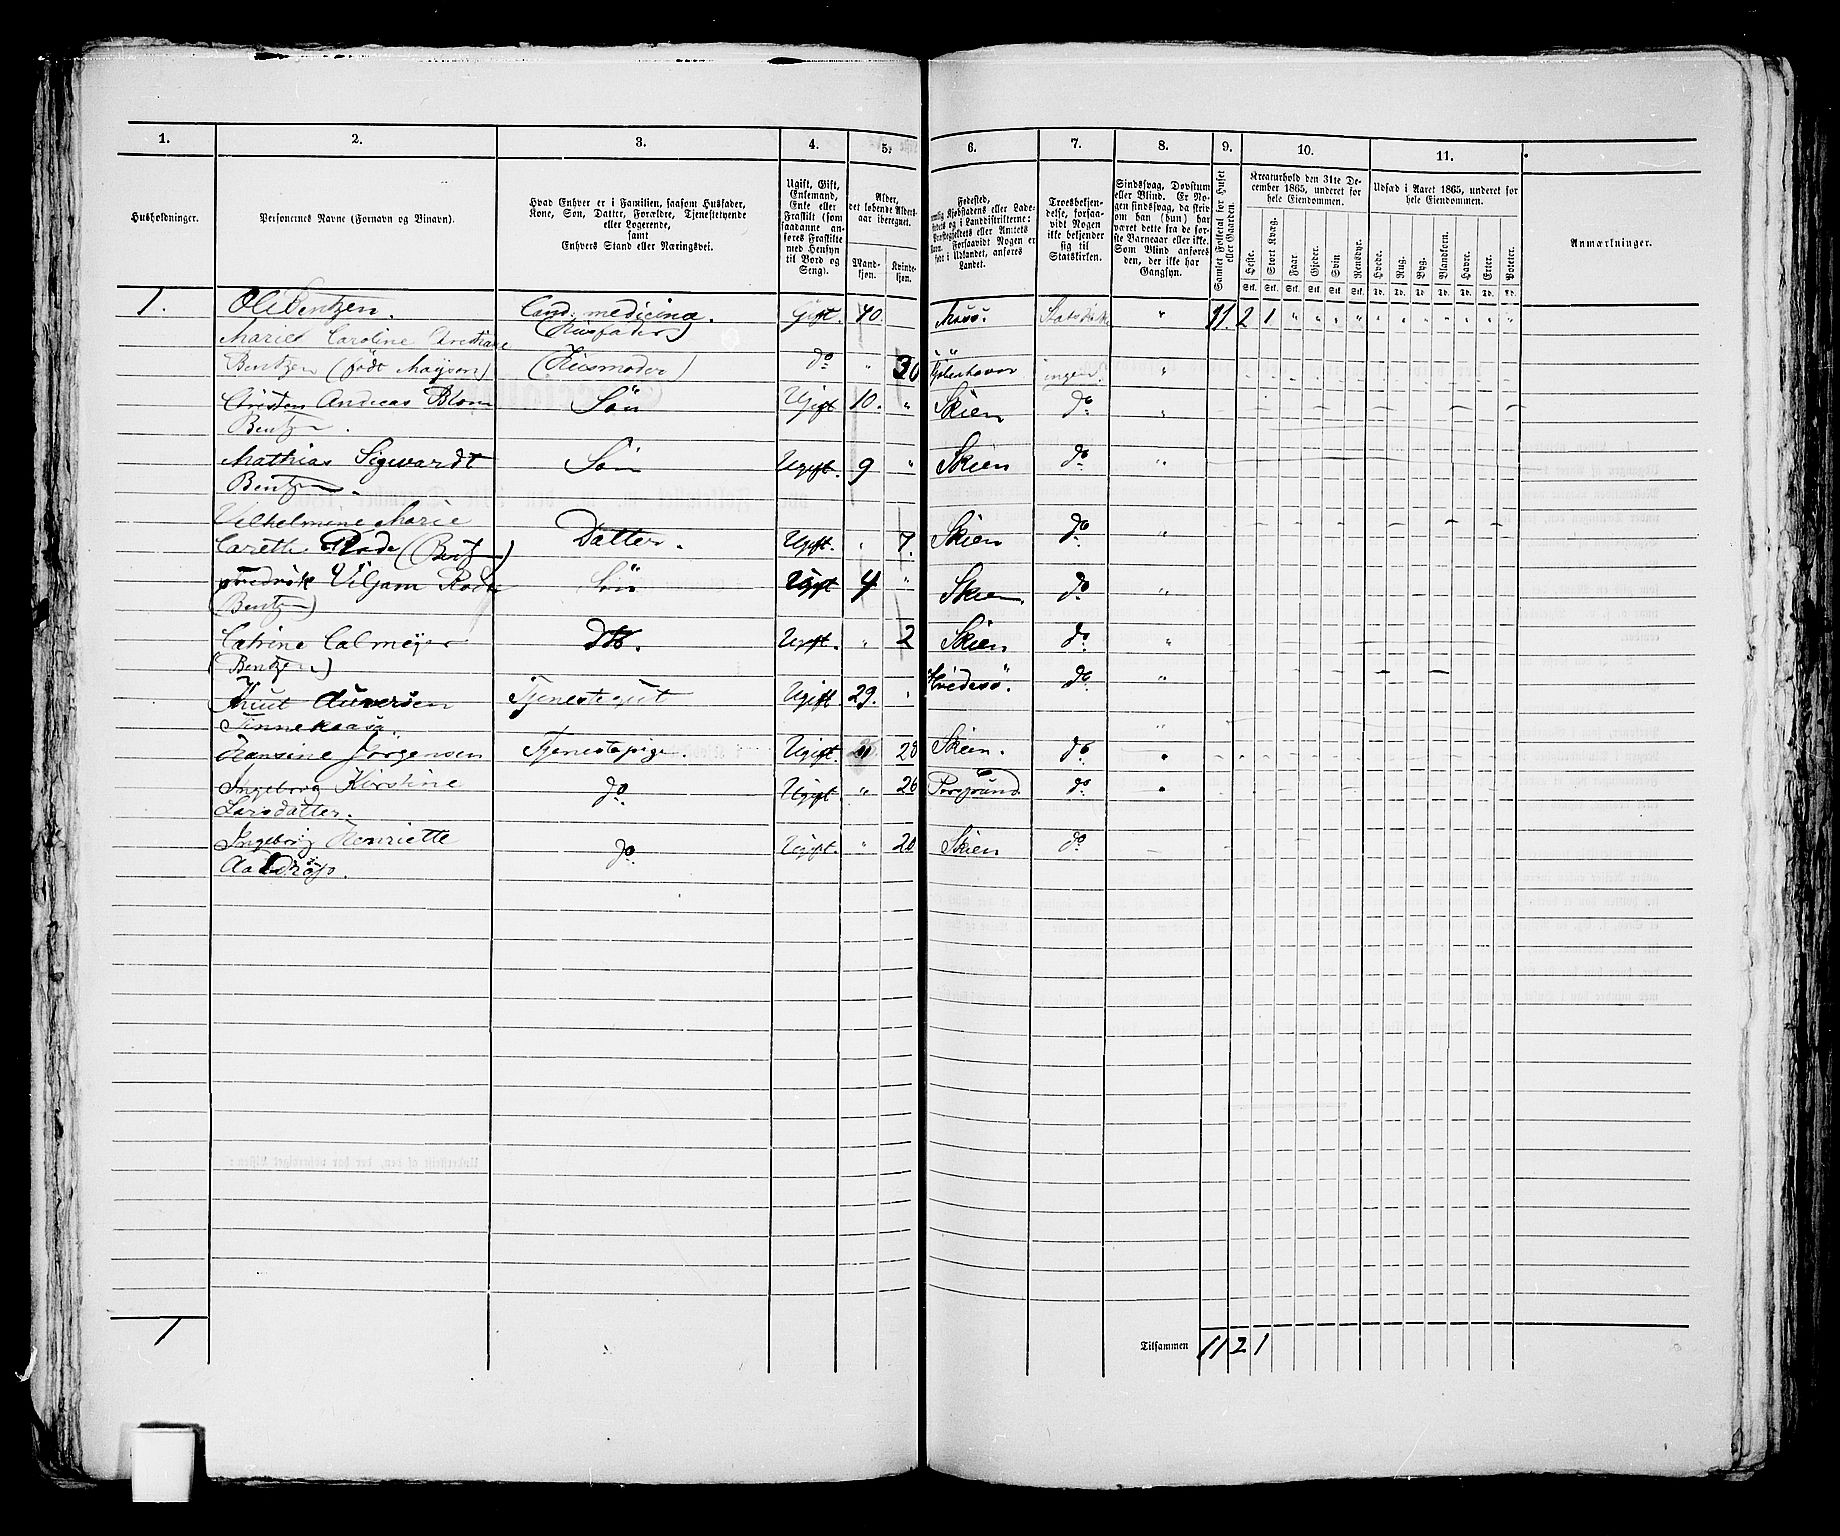 1. 2. 3. 4. 5. 6. 7. 8. 9. 10. 11.
Husholdninger.
Personernes Navne (Fornavn og Binavn).
Hvad Enhver er i Familien, saasom Husfader,
Kone, Søn, Datter, Forældre, Tjenestetyende
eller Logerende,
samt
Enhvers Stand eller Næringsvei.
Ugift, Gift,
Enkemand,
Enke eller
Fraskilt (som
saadanne an-
føres Fraskilte
med Hensyn
til Bord og
Seng).
Alder,
det løbende Alders-
aar iberegnet.
Mand-
kjøn.
Kvinde-
kjøn.
Fødested,
Kjøbstadens eller Lade-
og i Landdistrikterne:
Præstegjeldets eller Amtets
Navn. Forsaavidt Nogen er
født i Udlandet, anføres
Landet.
Troesbekjen-
delse, forsaa-
vidt Nogen
ikke bekjender
sig til
Statskirken.
Sindssvag, Døvstum
eller Blind. Er No-
gen sindssvag, da skriv
om han (hun) har
været dette fra de før-
ste Barneaar eller ikke.
Som Blind anføres
den, der ikke har
Gangsyn.
Samlet Folketal for Huset
eller Gaarden.
Kreaturhold den 31te De-
cember 1865, underet for
hele Eiendommen.
Heste. Stort Kvæg. Faar. Gjeder. Svin Rensdyr.
Stk. Stk. Stk. Stk. Stk. Stk.
Udsæd i Aaret 1865, underet for
hele Eiendommen.
Hvede. Rug. Byg. Blandkorn. Havre. Erter. Poteter.
Td. Td. Td. Td. Td. Td. Td.
Anmærkninger.
1. Ole Bentzen. Cand. medicinæ. Gift. 40. 11 2 1
(Husfader)
Marie Caroline Christiane
Bentzen (født Mayson) (Huusmoder) do " 30 Kjøbenhavn ingen "
Christen Andreas Blom Søn Ugift 10. " Skien do "
Bentzen.
Mathias Sigvardt Søn Ugift. 9 " Skien do "
Bentzen.
Vilhelmine Marie
Careth Rode (Bentzen) Datter. Ugift. " 7. Skien do "
Fredrik Viljam Rode Søn Ugift 4 " Skien. do "
(Bentzen)
Catrine Calmeyer Dtt. Ugift. " 2 Skien do "
(Bentzen)
Knut Tjenestegut Ugift 29. " Hvidesø. do "
Hansine Jørgensen Tjenestepige. Ugift. " 28 Skien. do "
Ingeborg Kirstine do Ugift " 26 Porsgrund do "
Larsdatter.
Ingeborg Henriette do Ugift. " 20 Skien do
1
Tilsammen 11 2 1